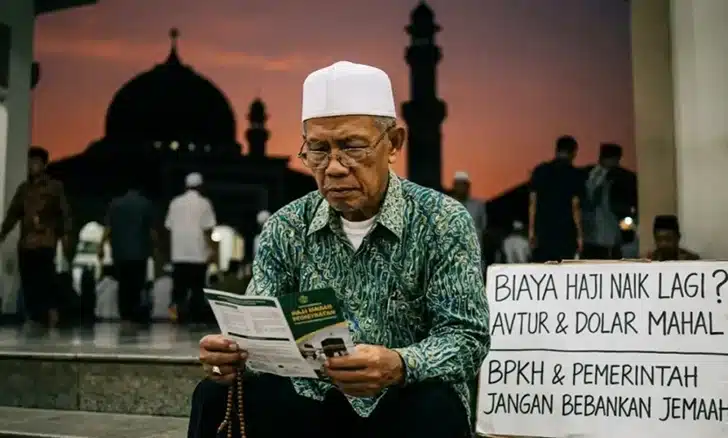 HAJI
BIAYA HAJI NAIK LAGI?
AVTUR & DOLAR MAHAL
BPKH & PEMERINTAH
JANGAN BEBANKAN JEMAAH